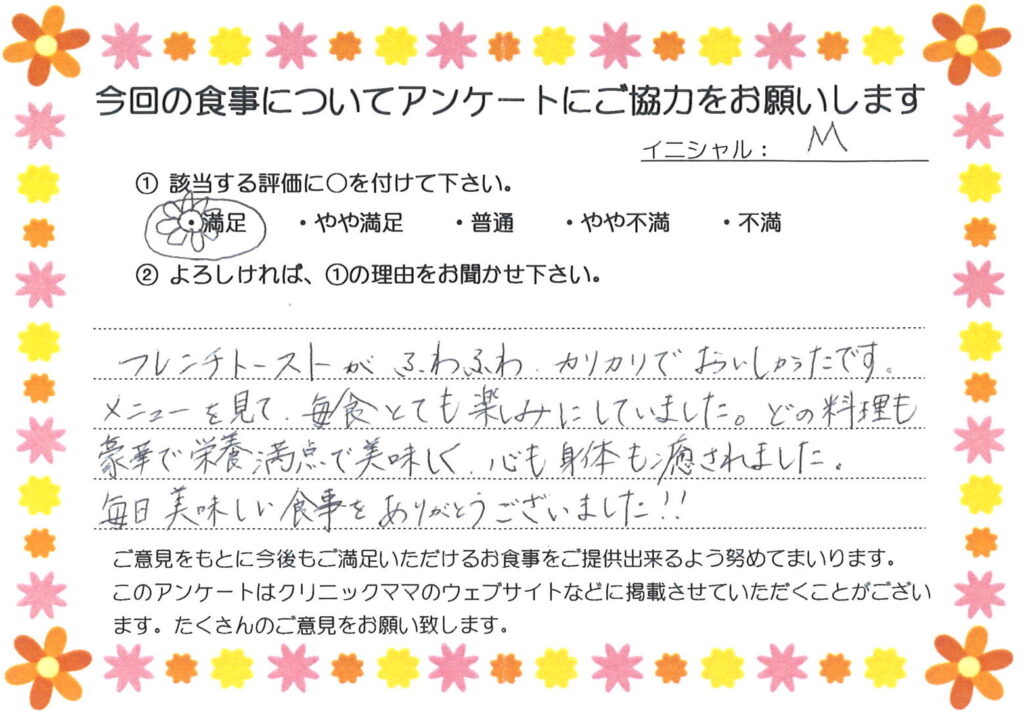 今回の食事についてアンケートにご協力をお願いします
イニシャル： M
① 該当する評価に○を付けて下さい。
・満足 ・やや満足 ・普通 ・やや不満 ・不満
② よろしければ、①の理由をお聞かせ下さい。
フレンチトーストが ふわふわ、カリカリで おいしかったです。
メニューを見て、毎食とても楽しみにしていました。どの料理も
豪華で栄養満点で美味しく、心も身体も癒されました。
毎日美味しい食事をありがとうございました!!
ご意見をもとに今後もご満足いただけるお食事をご提供出来るよう努めてまいります。
このアンケートはクリニックママのウェブサイトなどに掲載させていただくことがござい
ます。たくさんのご意見をお願い致します。